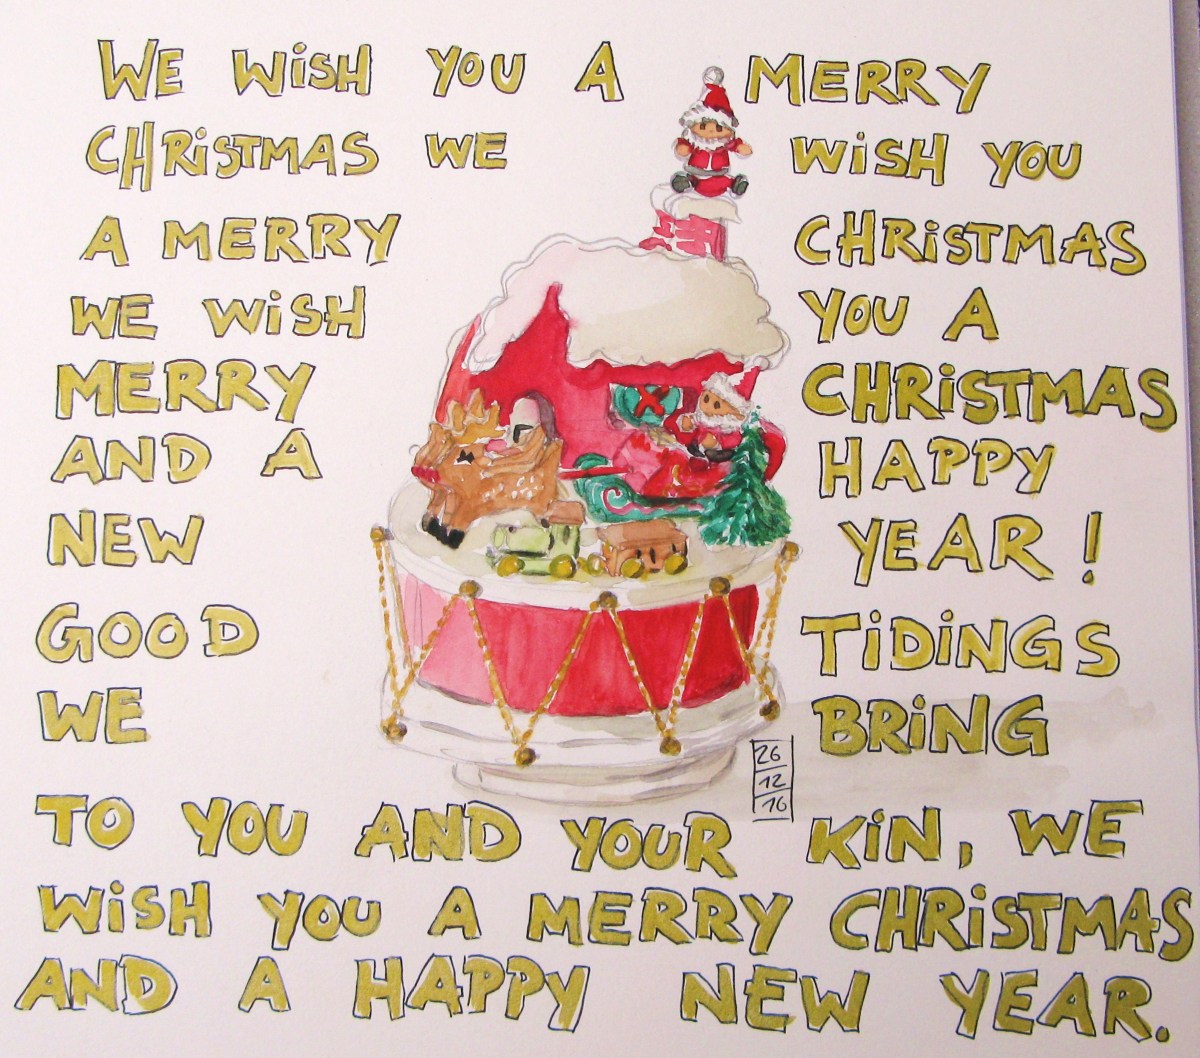 WE WiSH YOU A MERRY
CHRiSTMAS WE WiSH YOU
A MERRY CHRiSTMAS
WE WiSH YOU A
MERRY CHRiSTMAS
AND A HAPPY
NEW YEAR!
GOOD TiDiNGS
WE BRiNG
TO YOU AND YOUR KiN, WE
WiSH YOU A MERRY CHRiSTMAS
AND A HAPPY NEW YEAR.
26
12
16